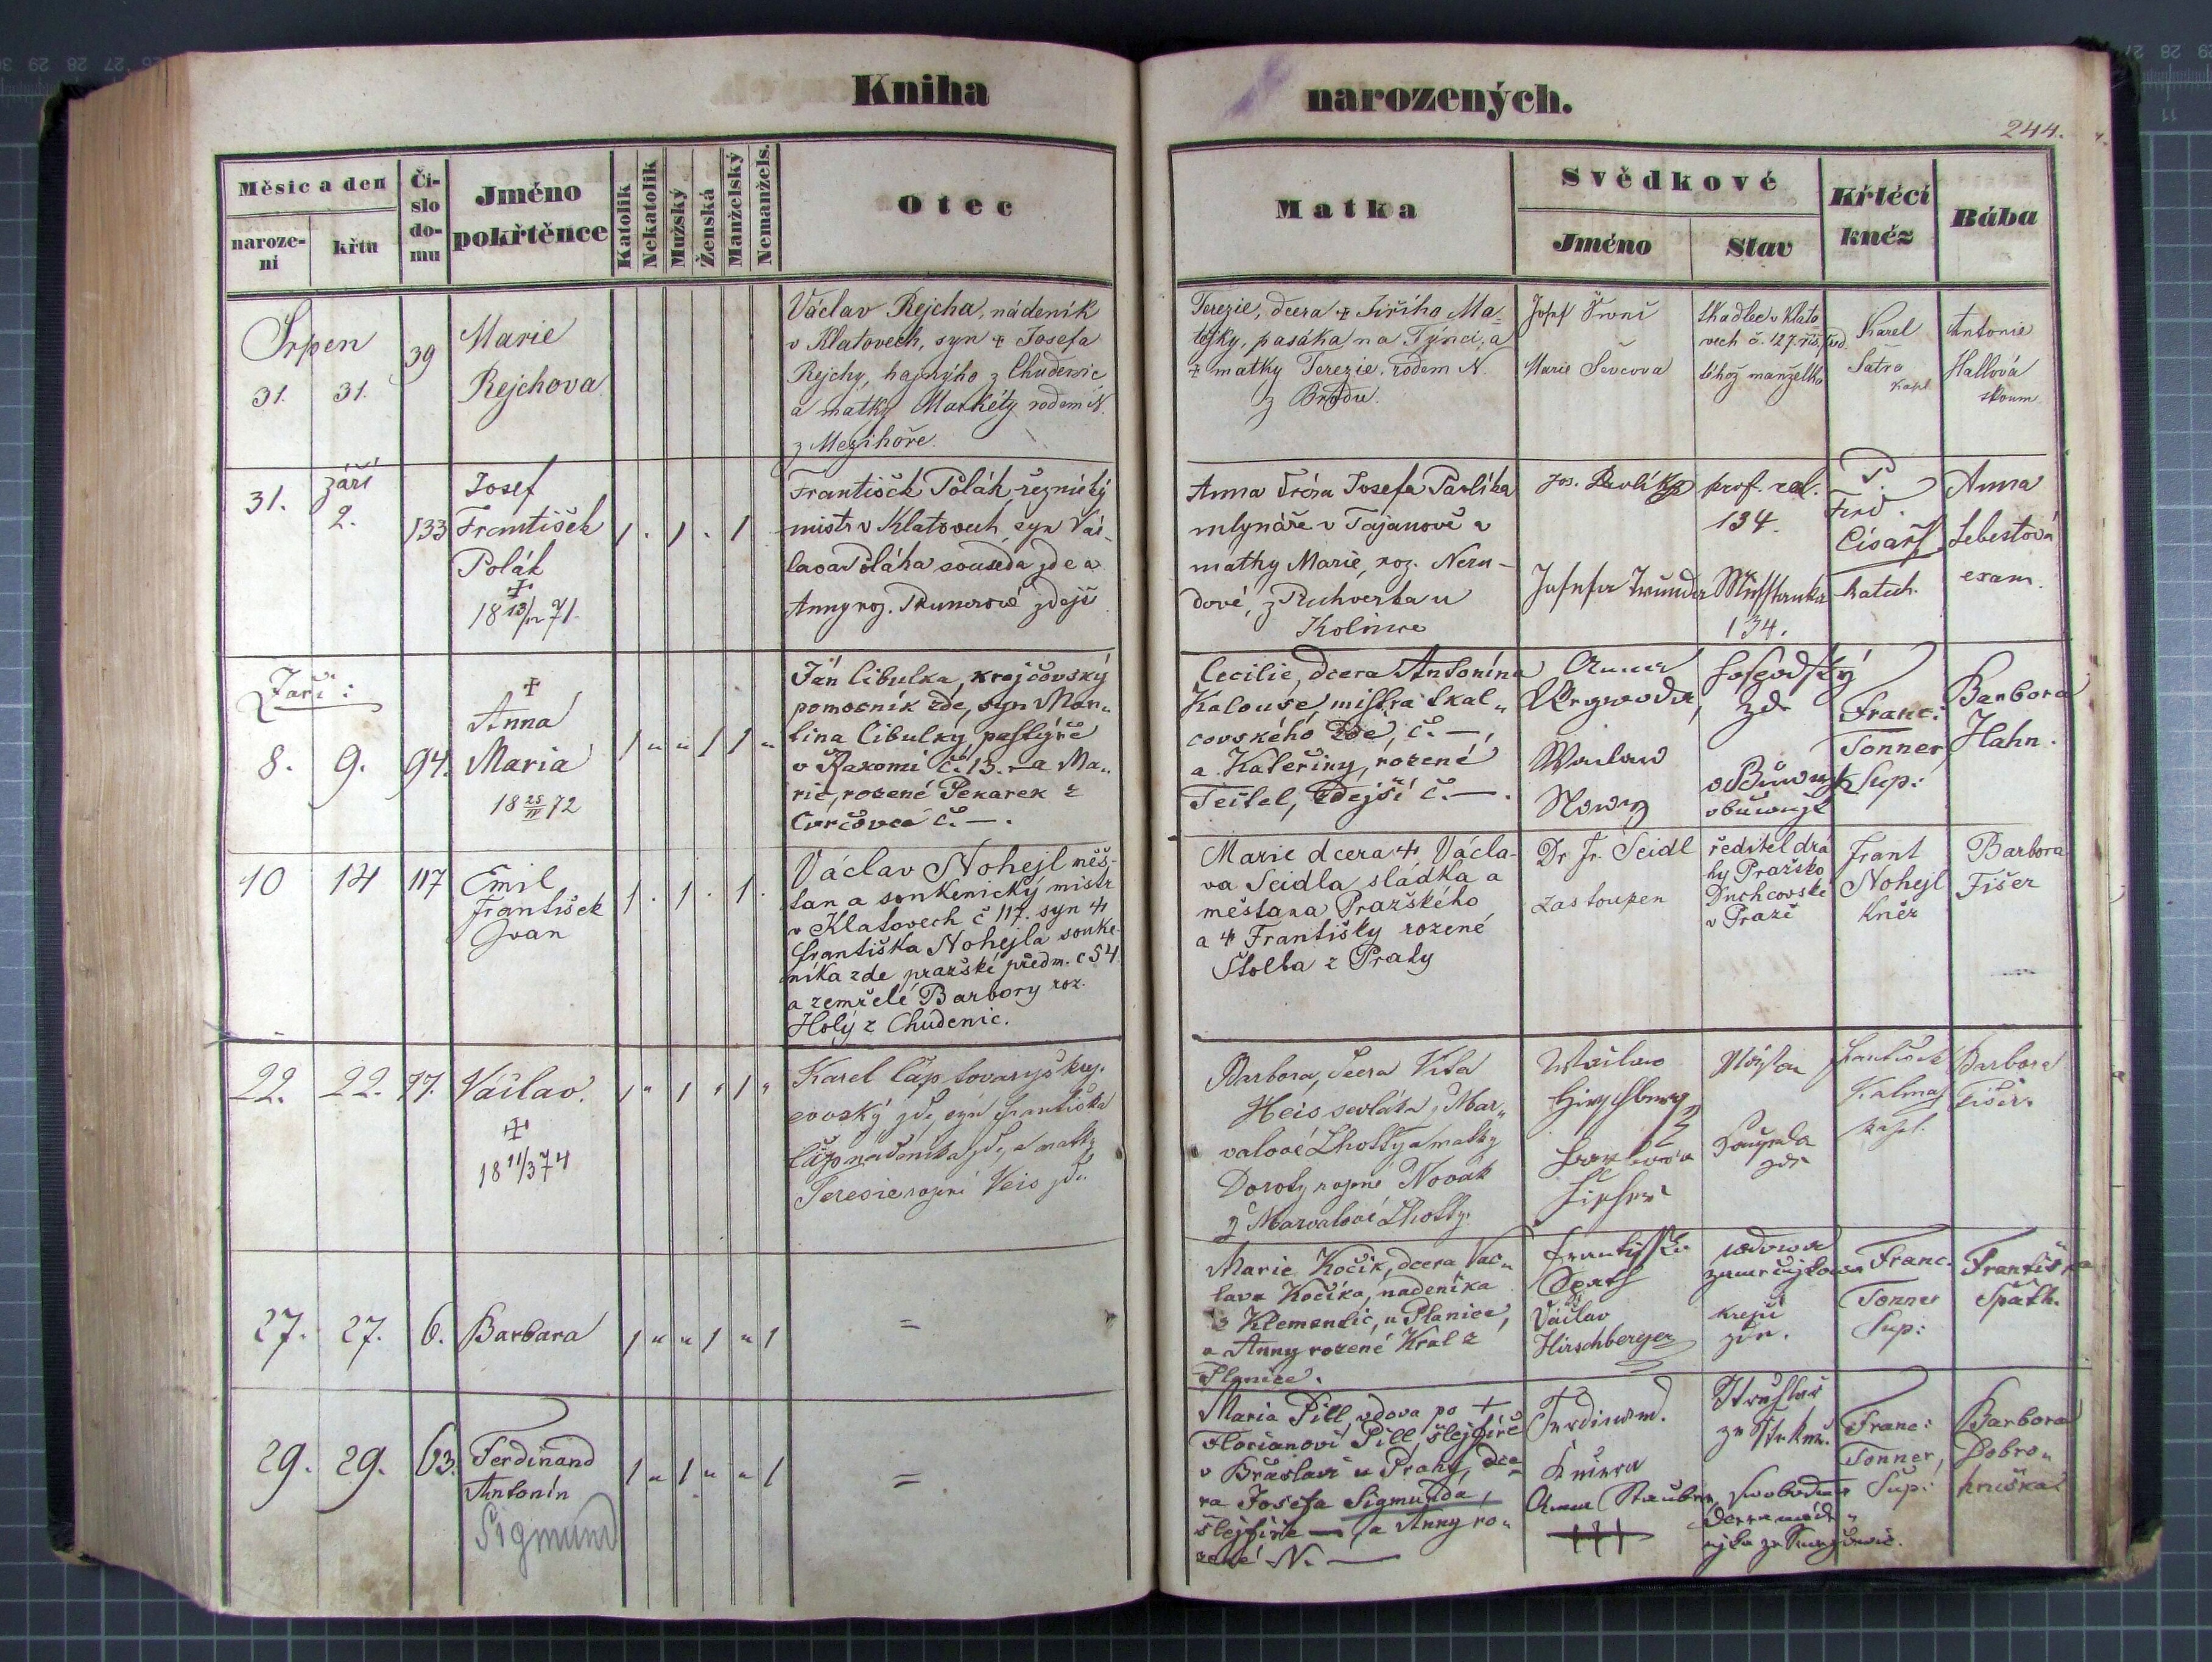 Kniha
narozených.
244.
Měsíc a den
naroze-
ni
křtu
Čí-
slo
do-
mu
Jméno
pokřtěnce
Katolík
Nekatolík
Mužský
Ženská
Manželský
Nemanžels.
Otec
Matka
Svědkové
Jméno
Stav
Křtécí
kněz
Bába
Srpen
31.
31.
39
Marie
Rejchova
Václav Rejcha, nádeník
v Klatovech, syn + Josefa
Rejchy, hajného z Chudenic
a matky Markéty rodem N.
z Mezihoře.
Terezie, dcera + Jiřího Ma-
tějky, pasáka na Týnci, a
+ matky Terezie, rodem N.
z Brodu.
Josef
Marie Ševcova
tkadlec v Klato
vech č. 127.
téhož manželka
Karel
Šatra
kapl.
Antonie
Hallová
zkoum.
31.
září
2.
133
Josef
František
Polák
+
18 13/12 71.
1 . 1 . 1
František Polák řeznický
mistr v Klatovech, syn Vác-
lava Poláka souseda zde a
Anny roz. zdejší
Anna dcera Josefa Pavlíka
mlynáře v Tajanově a
matky Marie, roz. Neru-
dové, z Puchverka u
Kolince
Jos. Pavlík
prof. real.
134.
134.
P.
Ferd.
Císař
katech.
Anna
Šebestová
exam.
Září:
8.
9.
94.
+
Anna
Maria
18 25/IV 72
1 " " 1 1 "
Ján Cibulka, krejčovský
pomocník zde, syn Mar„
tina Cibulky, pastýře
v Žakomi č. 13. a Ma„
rie, rozené Pekarek z
Cvrčovce č. —.
Cecilie, dcera Antonína
Kalouse, mistra tkal„
covského zde, č. —,
a Kateřiny, rozené
Teitel, zdejší č. —.
Anna
Waclaw
Nowy
zde
obuwnik
Franc:
Tonner,
Sup:
Barbora
Hahn.
10
14
117
Emil
František
Ivan
1 . 1 . 1 .
Václav Nohejl měš-
tan a soukenický mistr
v Klatovech č 117. syn +
Františka Nohejla souke-
níka zde pražské předm. č 54
a zemřelé Barbory roz.
Holý z Chudenic.
Marie dcera + Václa-
va Seidla sládka a
měštana Pražského
a + Františky rozené
Štolba z Prahy
Dr Fr. Seidl
zastoupen
ředitel drá
hy Pražsko
Duchcovské
v Praze
Frant
Nohejl
kněz
Barbora
Fišer
22.
22.
77.
Václav.
+
18 11/3 74
1 " 1 " 1 "
Karel Čáp tovaryš krej-
čovský zde, syn Františka
Čáp nádeníka zde, a matky
Terezie rozené Veis zde
Barbora, dcera Víta
Heis sedláka z Mar„
valové Lhotty a matky
Doroty rozené Novák
z Marvalové Lhotty.
Václav
Hirschberger
Barbora
Fischer
zde
František
Kalmas
kapl.
Barbora
Fišer.
27.
27.
6.
Barbara
1 " " 1 " 1
=
Marie Kočík, dcera Vác„
lava Kočíka, nádeníka
z Klementic, u Planice,
a Anny rozené Kral z
Planice.
Františka
Späth
Václav
Hirschberger
vdova
krejčí
zde.
Franc.
Tonner
Sup:
Františka
Späth.
29.
29.
63.
Ferdinand
Antonín
Sigmund
1 " 1 " " 1
=
Maria Pill, vdova po +
Florianovi Pill, šlejfíře
v Břaslavi u Prahy, dce„
ra Josefa Sigmunda,
šlejfíře —, a Anny ro„
zené N. —
Ferdinand.
Kučera
Anna Stauber,
+++
Franc:
Tonner,
Sup:
Barbora
Dobro„
hruška